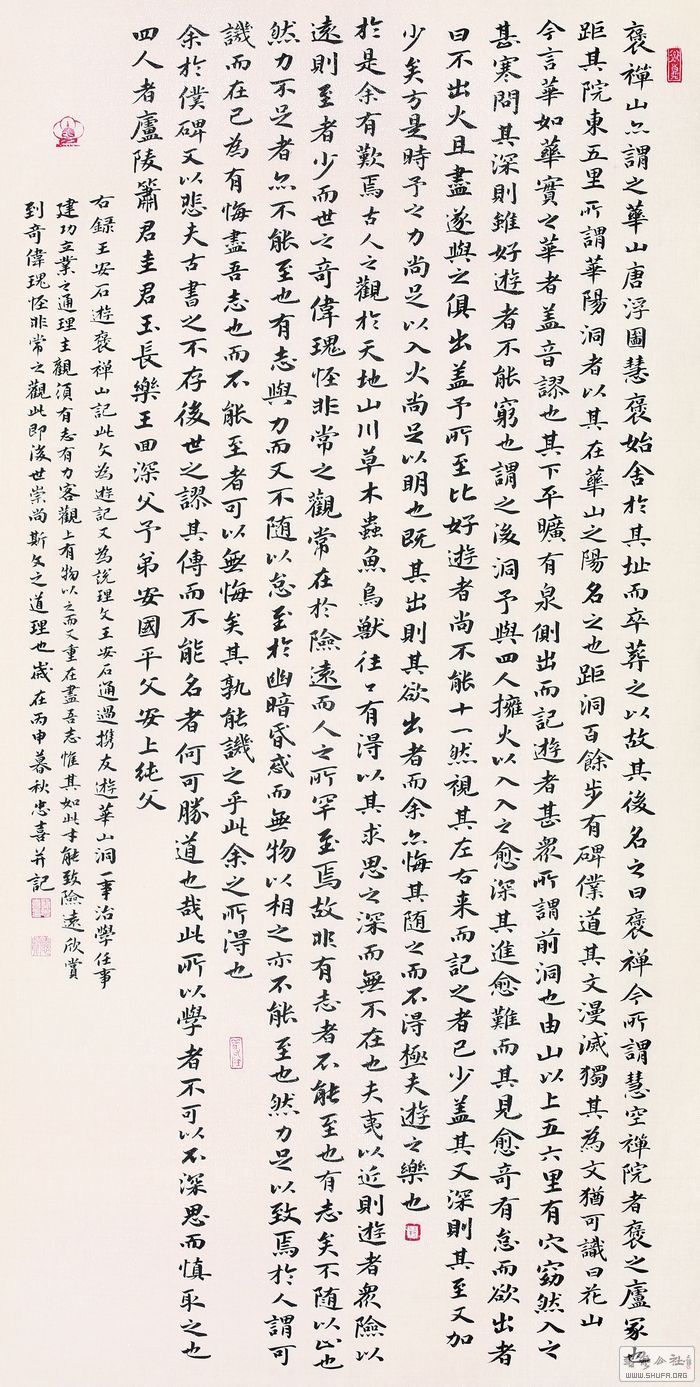 褒禪山亦謂之華山唐浮圖慧褒始舍於其址而卒葬之以故其後名之曰褒禪今所謂慧空禪院者褒之廬冢也
距其院東五里所謂華陽洞者以其在華山之陽名之也距洞百餘步有碑僕道其文漫滅獨其為文猶可識曰花山
今言華如華實之華者蓋音謬也其下平曠有泉側出而記遊者甚眾所謂前洞也由山以上五六里有穴窈然入之
甚寒問其深則雖好遊者不能窮也謂之後洞予與四人擁火以入入之愈深其進愈難而其見愈奇有怠而欲出者
曰不出火且盡遂與之俱出蓋予所至比好遊者尚不能十一然視其左右來而記之者已少蓋其又深則其至又加
少矣方是時予之力尚足以入火尚足以明也既其出則其欲出者而余亦悔其隨之而不得極夫遊之樂也
於是余有歎焉古人之觀於天地山川草木蟲魚鳥獸往々有得以其求思之深而無不在也夫夷以近則遊者眾險以
遠則至者少而世之奇偉瑰怪非常之觀常在於險遠而人之所罕至焉故非有志者不能至也有志矣不隨以止也
然力不足者亦不能至也有志與力而又不隨以怠至於幽暗昏惑而無物以相之亦不能至也然力足以致焉於人謂可
譏而在己為有悔盡吾志也而不能至者可以無悔矣其孰能譏之乎此余之所得也
余於僕碑又以悲夫古書之不存後世之謬其傳而不能名者何可勝道也哉此所以學者不可以不深思而慎取之也
四人者廬陵簫君圭君玉長樂王回深父予弟安國平父安上純父
右錄王安石遊褒禪山記此文為遊記又為說理文王安石通過攜友遊華山洞一事治學任事
建功立業之通理主觀須有志有力客觀上有物以之而又重在盡吾志惟其如此才能致險遠欣賞
到奇偉瑰怪非常之觀此即後世崇尚斯文之道理也歲在丙申暮秋忠喜并記
WWW.SHUFA.ORG